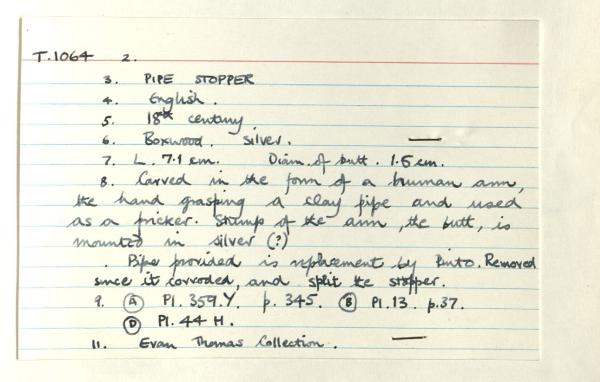 T.1064 2.
3. PIPE STOPPER
4. English.
5. 18th century
6. Boxwood. silver.
7. L. 7.1 cm. Diam. of butt. 1.5 cm.
8. Carved in the form of a human arm,
the hand grasping a clay pipe and used
as a pricker. Stump of the arm, the butt, is
mounted in silver (?)
. Pipe provided is replacement by Pinto. Removed
since it corroded, and split the stopper.
9. (A) Pl. 359.Y. p. 345. (B) Pl. 13. p. 37.
(D) Pl. 44 H.
11. Evan Thomas Collection.